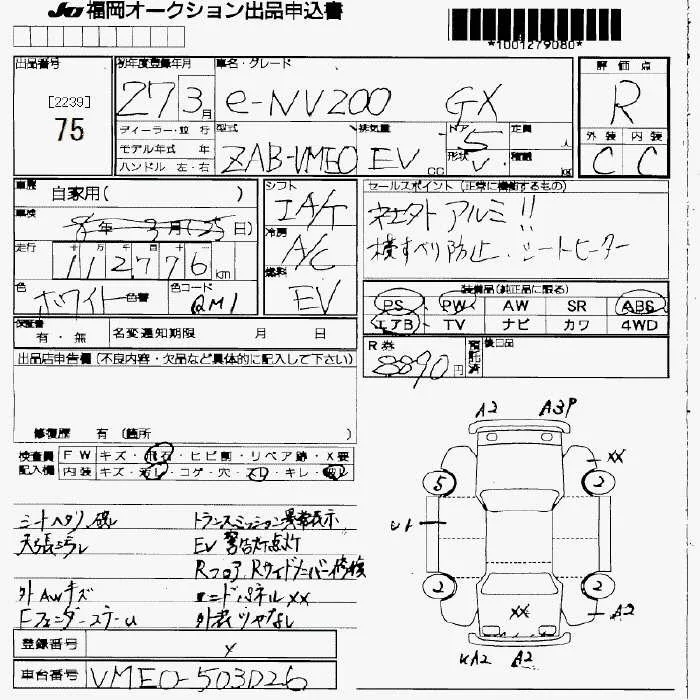 JU 福岡オークション出品申込書
*1001279080*
出品番号
[2239]
75
初年度登録年月
27 3 月
車名・グレード
e-NV200 GX
評価点
R
外装 内装
C C
ディーラー・並行
モデル年式 年
ハンドル 左・右
型式
ZAB-VME0
排気量
EV CC
ドア
5
形状
V
定員
人
積載
kg
車歴
自家用( )
車検
年 3月(25日)
走行
十 万 千 百
112776 km
色
ホワイト 色替
色コード
QM1
シフト
IA/T
冷房
A/C
燃料
EV
セールスポイント (正常に機能するもの)
アルミ!!
横すべり防止、シートヒーター
装備品(純正品に限る)
PS PW AW SR ABS
エアB TV ナビ カワ 4WD
保証書
有・無
名変通知期限 月 日
R券
8890円
預託済
後日品
出品店申告欄 (不良内容・欠品など具体的に記入して下さい)
修復歴 有 (箇所 )
検査員記入欄
FW キズ・飛石・ヒビ割・リペア跡・X要
内装 キズ・汚レ・コゲ・穴・スレ・キレ・破レ
シートヘタリ、破レ
天張汚レ
外AWキズ
トランスミッション異常表示
EV警告灯点灯
Rフロア、Rサイドメンバー修検
エンドパネルXX
外装ツヤなし
登録番号
車台番号 VME0-503026
A2 A3P
XX
5 2
2 2
XX
A2
A2